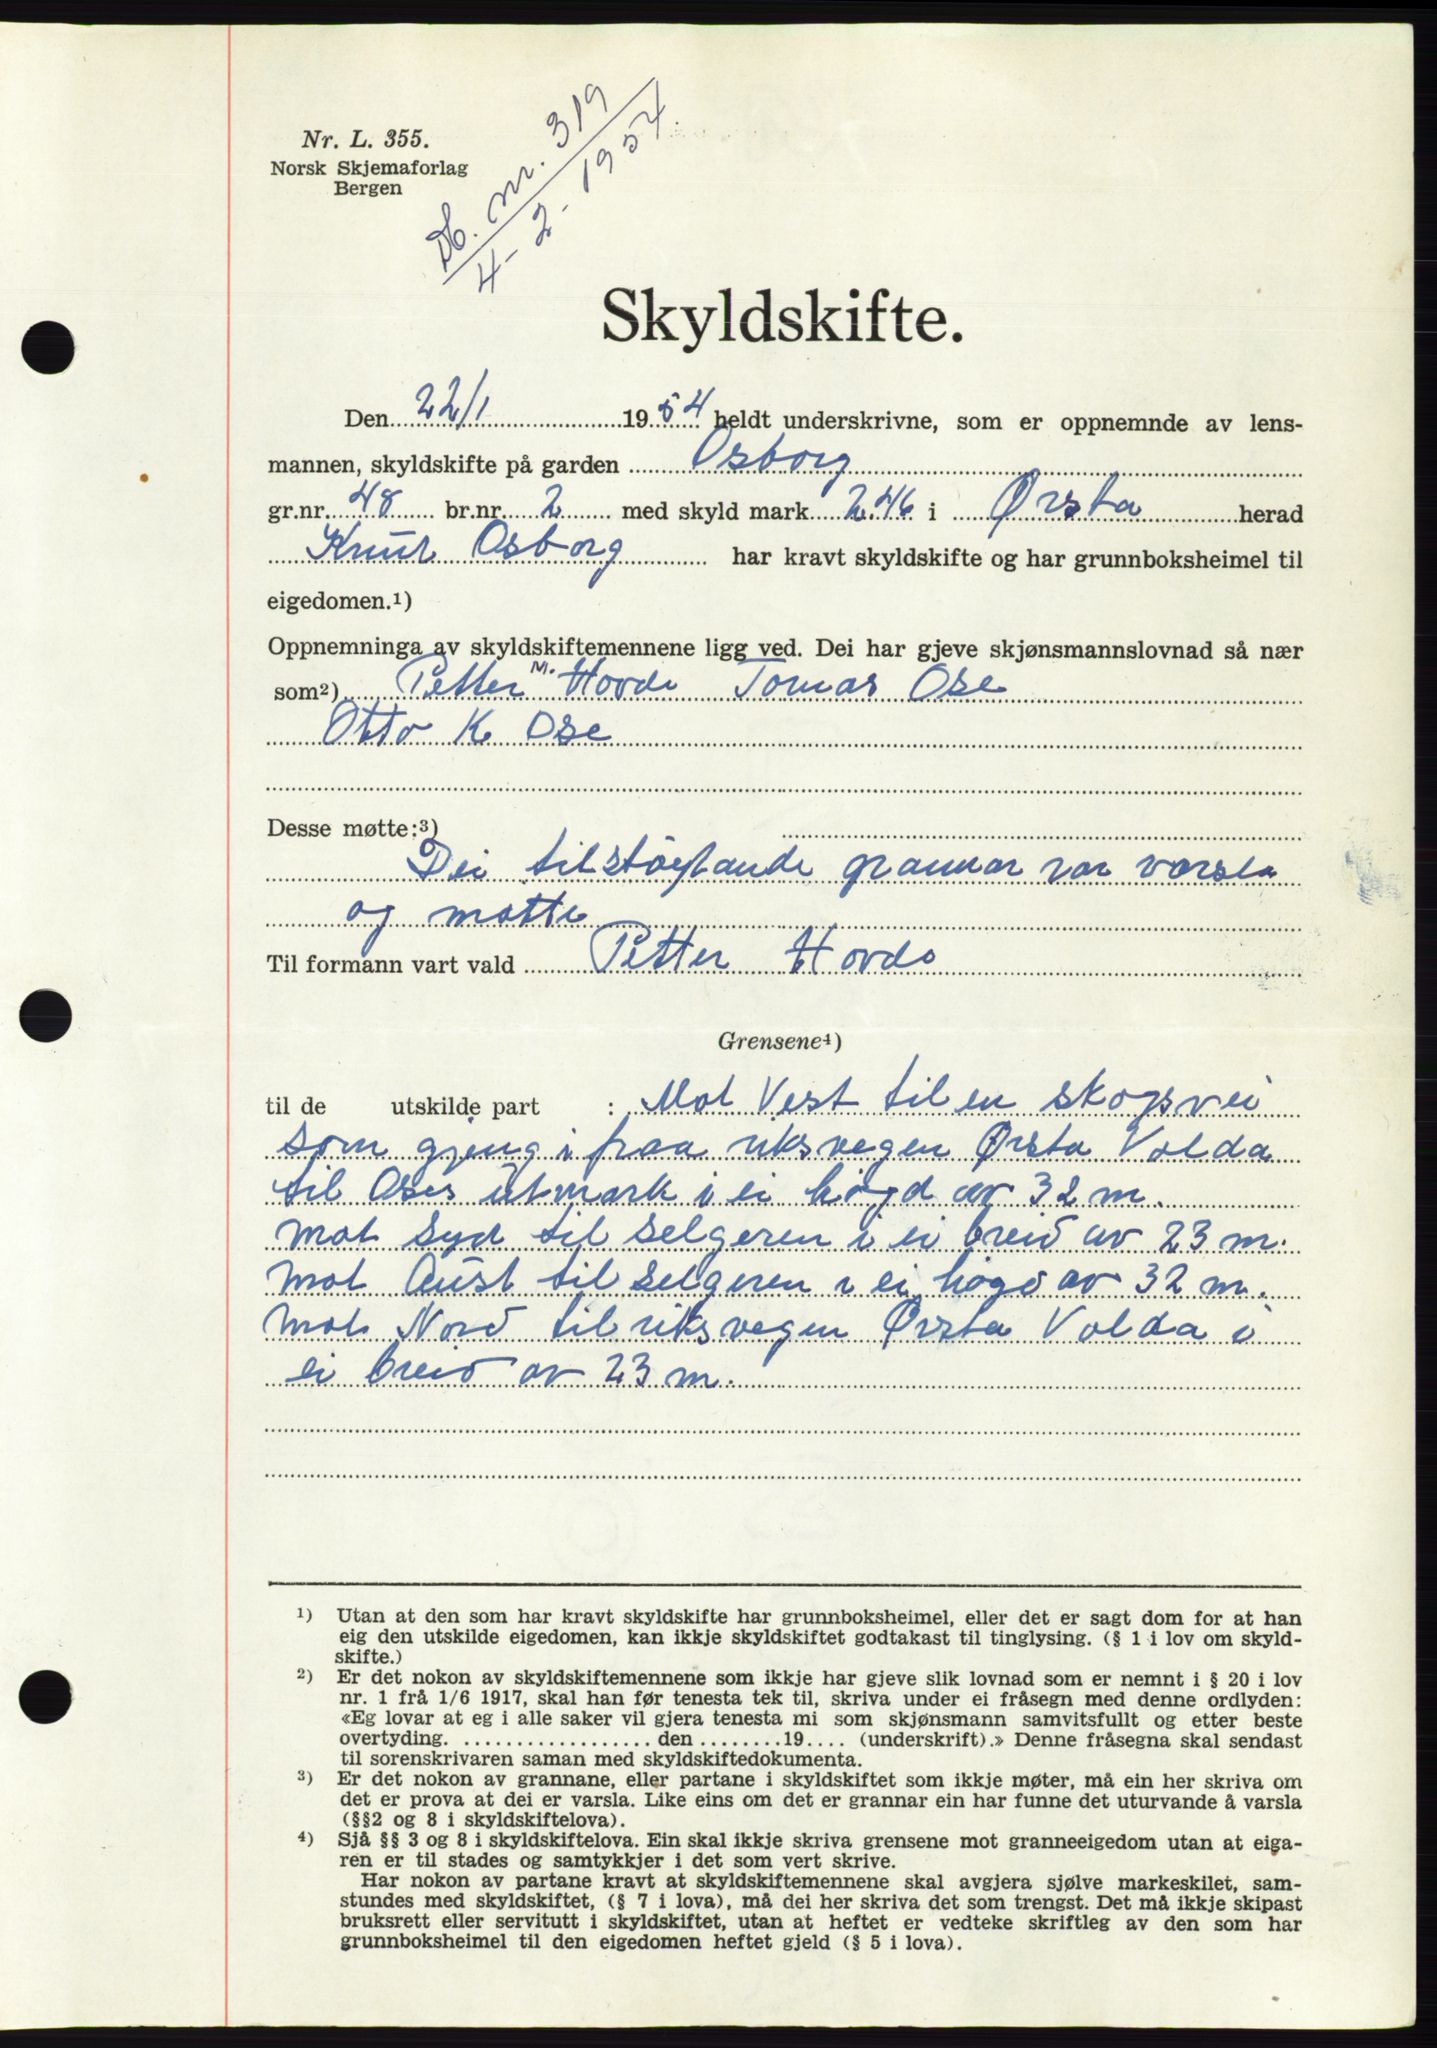 Nr. L. 355.
Norsk Skjemaforlag
Bergen
Db. nr. 319
4-2-1954.
Skyldskifte.
Den 22/1 1954 heldt underskrivne, som er oppnemnde av lens-
mannen, skyldskifte på garden Osborg
gr.nr. 48 br.nr. 2 med skyld mark 2.46 i Ørsta herad
Knut Osborg har kravt skyldskifte og har grunnboksheimel til
eigedomen.¹)
Oppnemninga av skyldskiftemennene ligg ved. Dei har gjeve skjønsmannslovnad så nær
som²) Petter M. Hovde Tomas Ose
Otto K Ose
Desse møtte:³)
Dei tilstøytande grannar var varsla
og møtte
Til formann vart vald Petter Hovde
Grensene⁴)
til de utskilde part : Mot Vest til en skogsvei
som gjeng i fraa riksvegen Ørsta Volda
til Oses utmark i ei høgd av 32 m.
mot Syd til selgeren i ei breid av 23 m.
Mot Aust til selgeren i ei høgd av 32 m.
Mot Nord til riksvegen Ørsta Volda i
ei breid av 23 m.
¹) Utan at den som har kravt skyldskifte har grunnboksheimel, eller det er sagt dom for at han
eig den utskilde eigedomen, kan ikkje skyldskiftet godtakast til tinglysing. (§ 1 i lov om skyld-
skifte.)
²) Er det nokon av skyldskiftemennene som ikkje har gjeve slik lovnad som er nemnt i § 20 i lov
nr. 1 frå 1/6 1917, skal han før tenesta tek til, skriva under ei fråsegn med denne ordlyden:
«Eg lovar at eg i alle saker vil gjera tenesta mi som skjønsmann samvitsfullt og etter beste
overtyding. .................. den ........19.... (underskrift).» Denne fråsegna skal sendast
til sorenskrivaren saman med skyldskiftedokumenta.
³) Er det nokon av grannane, eller partane i skyldskiftet som ikkje møter, må ein her skriva om
det er prova at dei er varsla. Like eins om det er grannar ein har funne det uturvande å varsla
(§§2 og 8 i skyldskiftelova).
⁴) Sjå §§ 3 og 8 i skyldskiftelova. Ein skal ikkje skriva grensene mot granneeigedom utan at eiga-
ren er til stades og samtykkjer i det som vert skrive.
Har nokon av partane kravt at skyldskiftemennene skal avgjera sjølve markeskilet, sam-
stundes med skyldskiftet, (§ 7 i lova), må dei her skriva det som trengst. Det må ikkje skipast
bruksrett eller servitutt i skyldskiftet, utan at heftet er vedteke skriftleg av den som har
grunnboksheimel til den eigedomen heftet gjeld (§ 5 i lova).